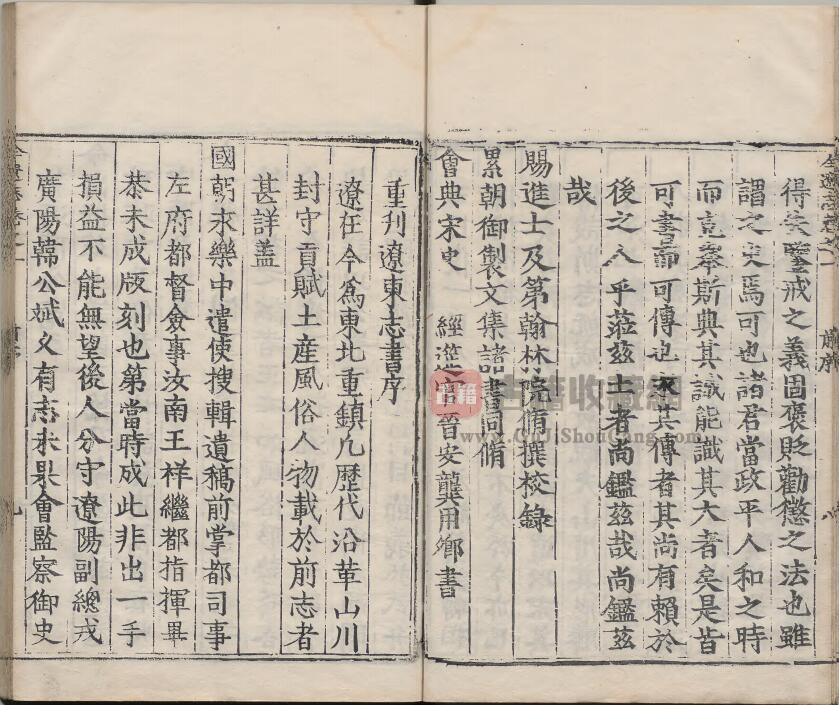 得失鑒戒之義固褒貶勸懲之法也雖
謂之史焉可也諸君當政平人和之時
而克舉斯典其識能識其大者矣是皆
可書而可傳也求其傳者其尚有賴於
後之人乎蒞茲土者尚鑑茲哉尚鑑茲
哉
賜進士及第翰林院脩撰校錄
累朝御製文集諸書同脩
會典宋史 經筵官晉安龔用卿書
全遼志卷之一 前序 八
重刊遼東志書序
遼在今為東北重鎮凢歷代沿革山川
封守貢賦土產風俗人物載於前志者
甚詳蓋
國朝永樂中遣使搜輯遺稿前掌都司事
左府都督僉事汝南王祥繼都指揮畢
恭未成版刻也第當時成此非出一手
損益不能無望後人分守遼陽副總戎
廣陽韓公斌久有志未果會監察御史
全遼志卷之一 前序 九
古籍收藏網
www.GuJiShouCang.com